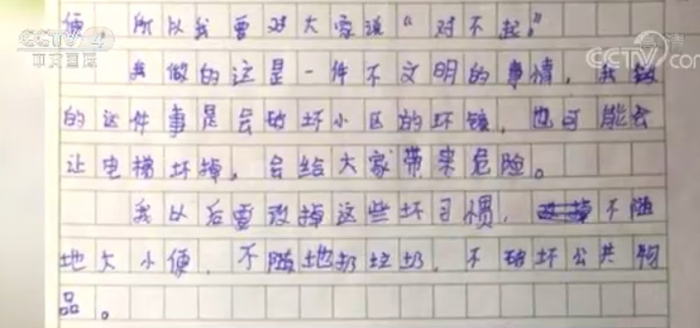 CCTV 4
中文国际
CCTV.com
便，所以我要对大家说“对不起”
我做的这是一件不文明的事情，我做
的这件事是会破坏小区的环境，也可能会
让电梯坏掉，会给大家带来危险。
我以后要改掉这些坏习惯，不随
地大小便，不随地扔垃圾，不破坏公共物
品。